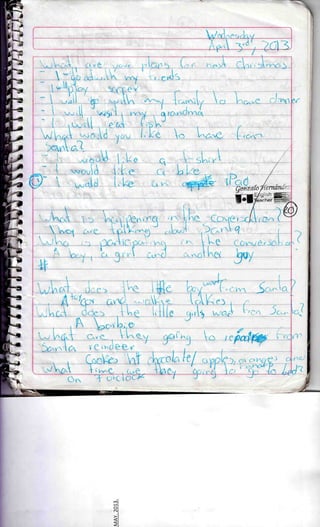 Wednesday
April 3rd, 2013
What are your plans for next christmas?
- I go out with my friends
- I play soccer
- I will go with my family to have dinner
- I will visit my grandma
- I will eat fish
What would you like to have from
Santa?
- I would like a t-shirt
- I would like a bike
- I would like an iPad
Gonzalo Hernánd
English
Teacher
What is happening in the conversation?
They are talking about Santa
Who is participating in the conversation?
A boy, a girl and another boy
#
What does the little boy want from Santa?
A car and walkie talkies
What does the little girls want from Santa?
A barbie
What are they going to from
Santa reindeer
Cookies hit chocolate/ apples, oranges and
What time are they going to go to bed?
On 7 o'clock
MAY 2013.